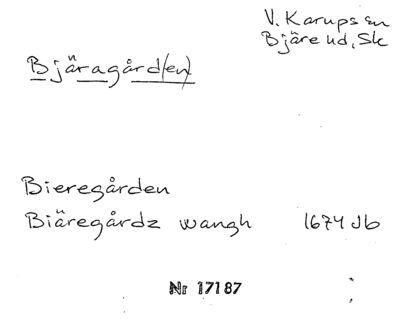 V. Karups sn
Bjäre hd, Sk
Bjäragård(en)
Bieregården
Biäregårdz wangh 1674 Jb
Nr 17187